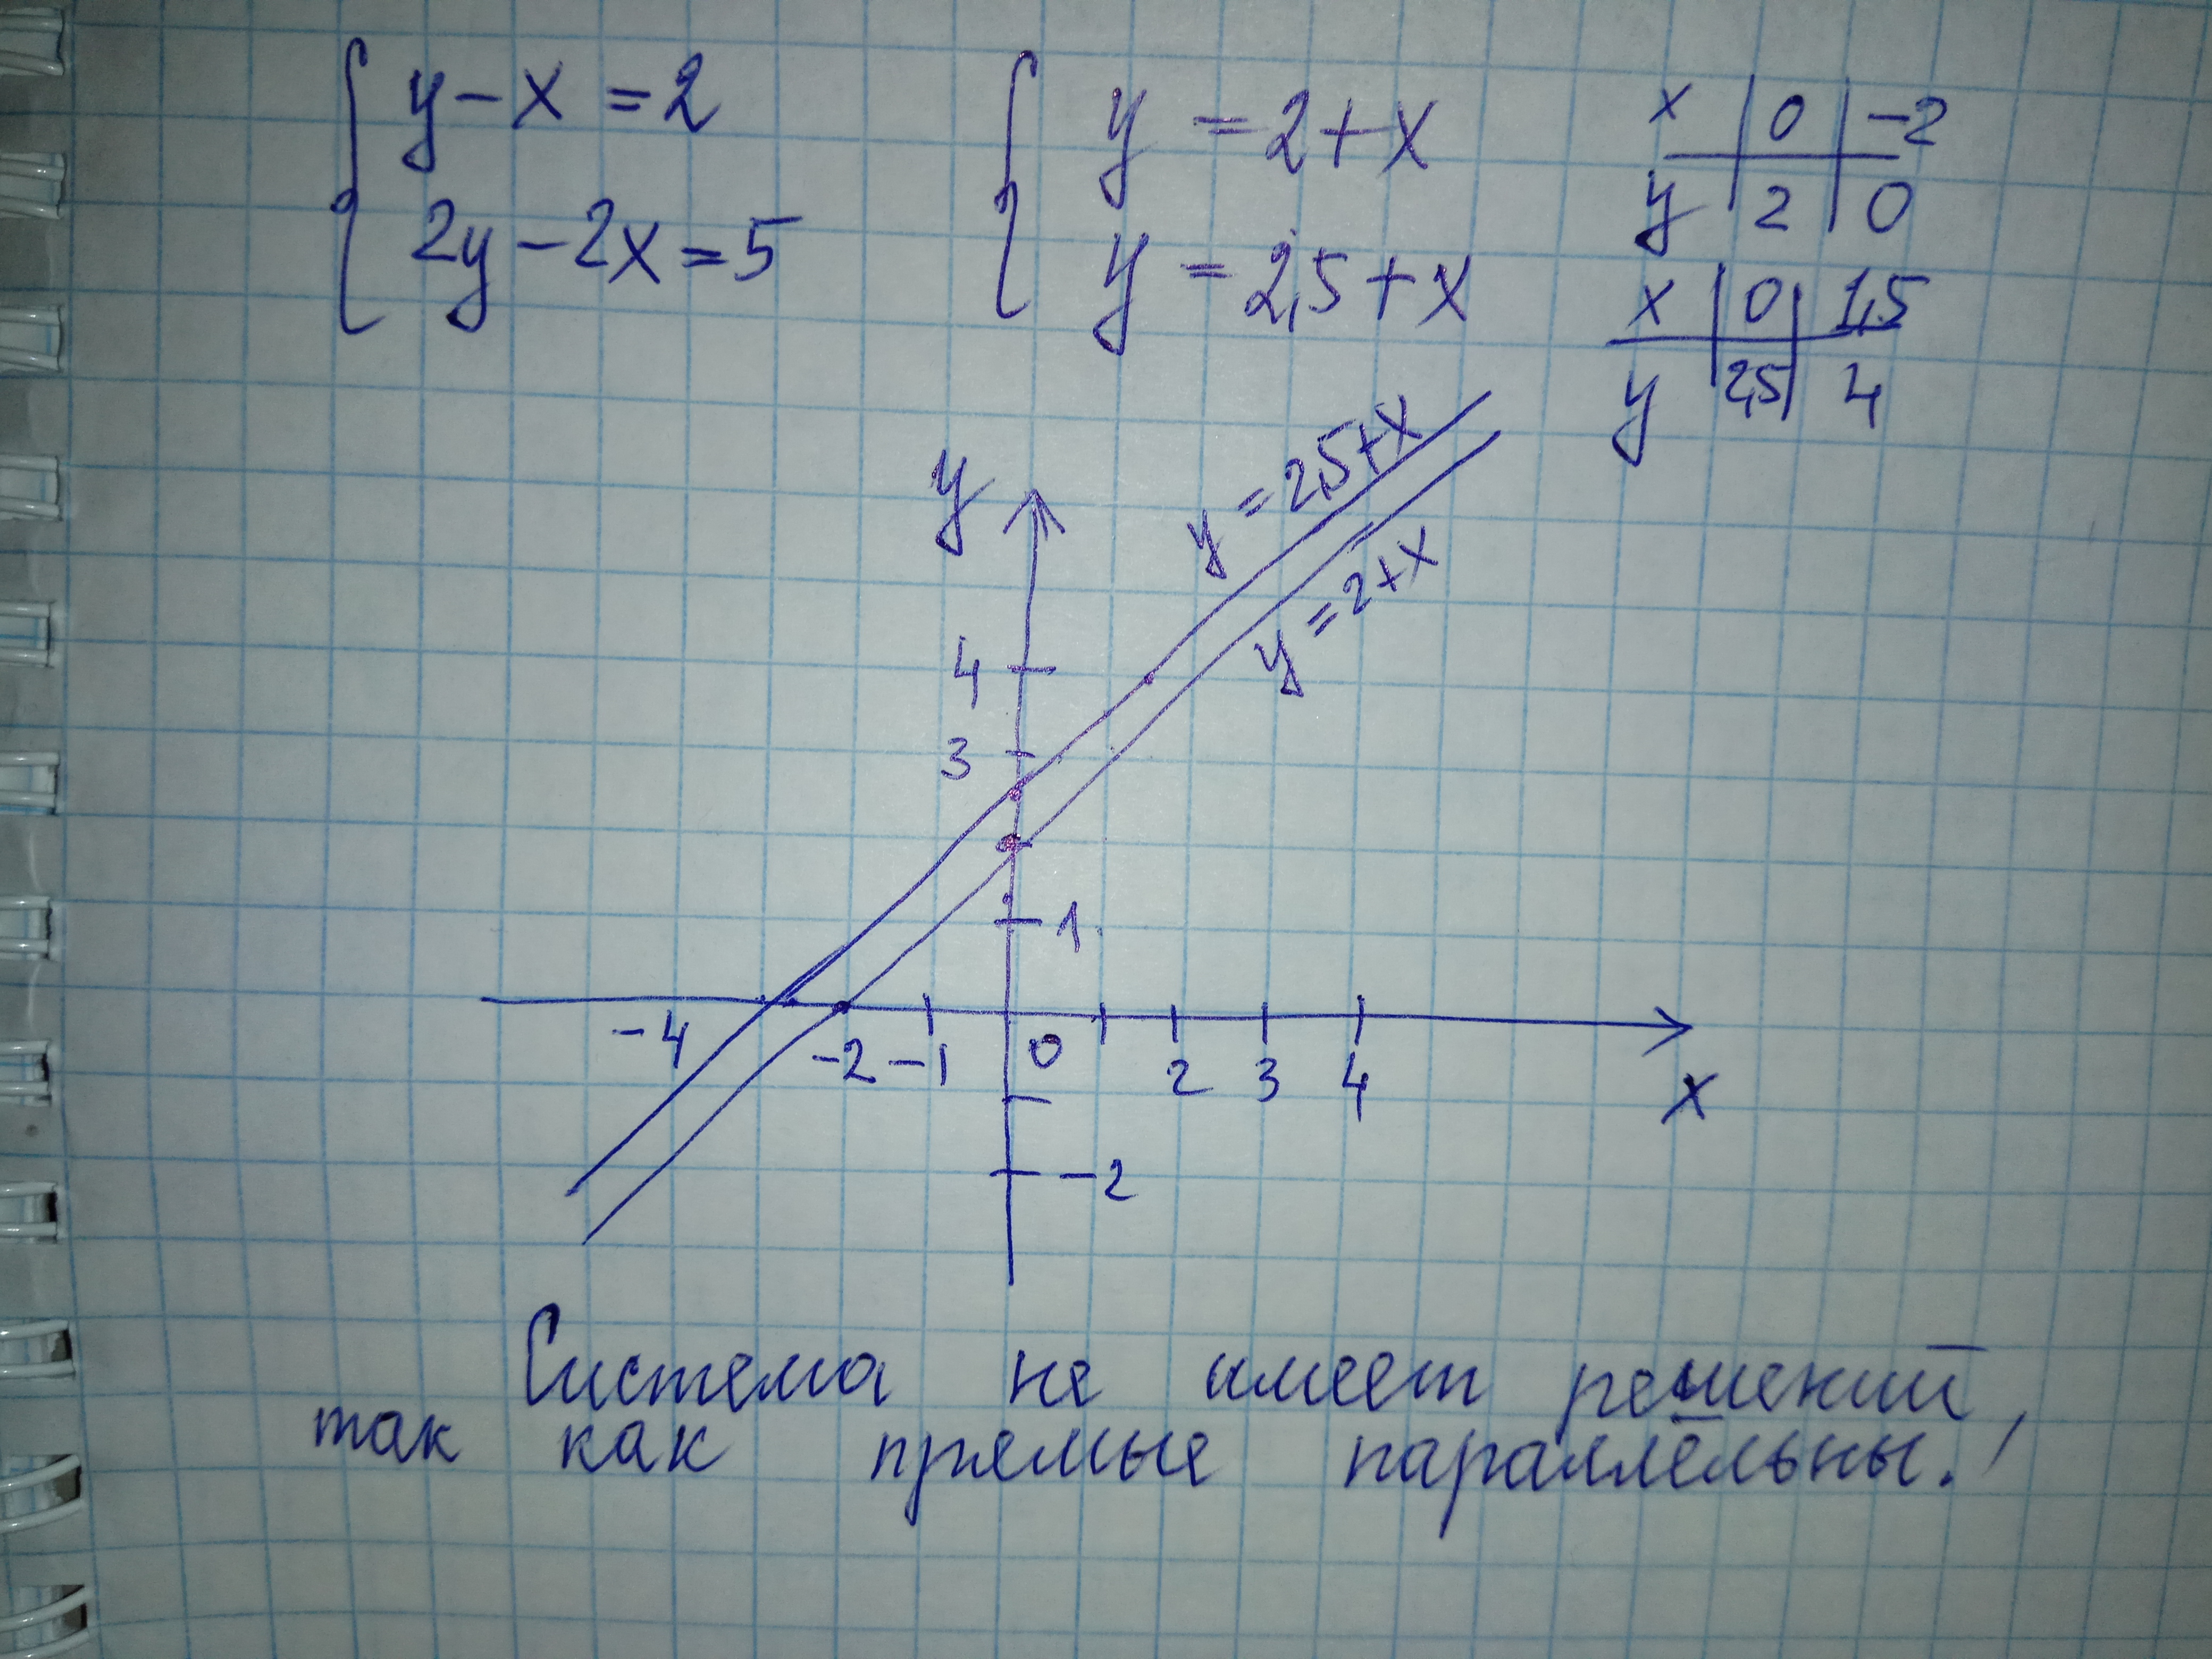 y - x = 2
2y - 2x = 5
y = 2 + x
y = 2,5 + x
x | 0 | -2
y | 2 | 0
x | 0 | 1,5
y | 2,5 | 4
y
y = 2,5 + x
y = 2 + x
4
3
1
-4 -2 -1 0 2 3 4
x
-2
Система не имеет решений,
так как прямые параллельны.